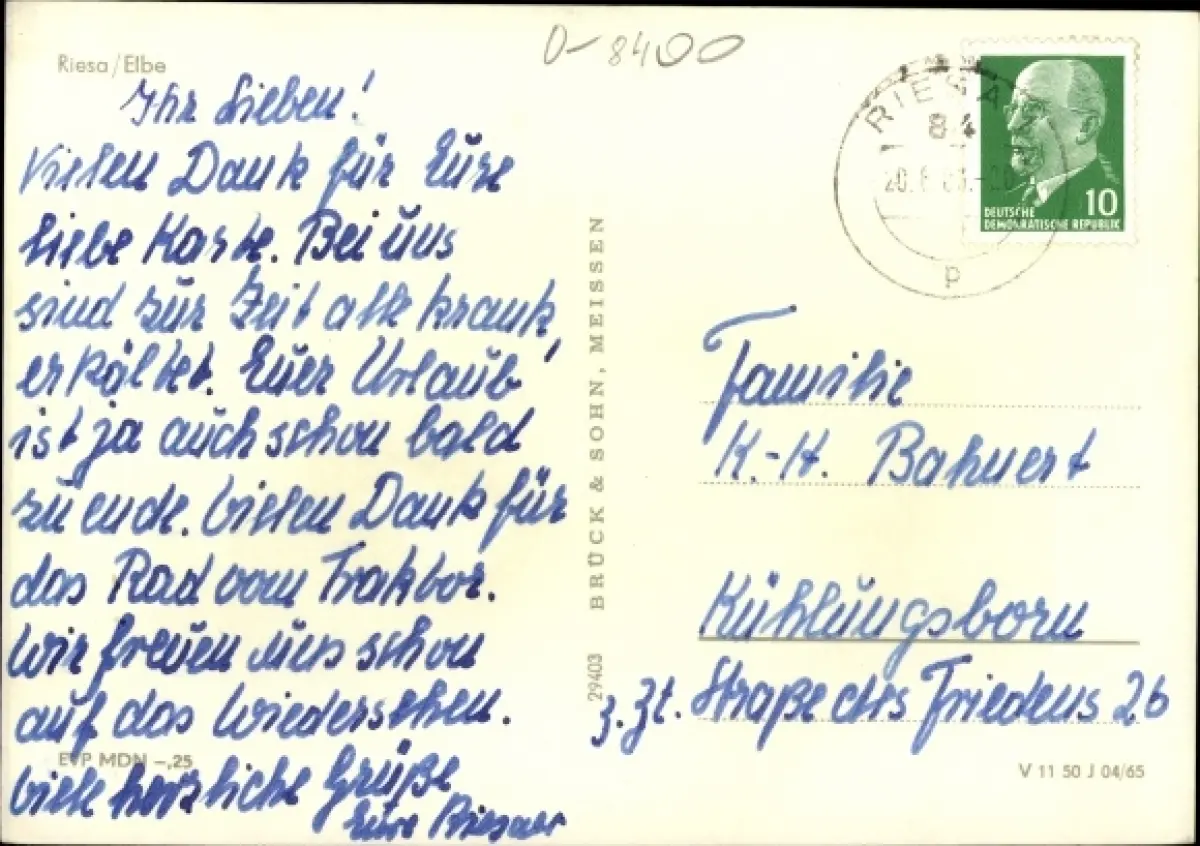 Riesa/Elbe
Ihr Lieben!
Vielen Dank für Eure
liebe Karte. Bei uns
sind zur Zeit alle krank,
erkältet. Euer Urlaub
ist ja auch schon bald
zu ende. Vielen Dank für
das Rad vom Traktor.
Wir freuen uns schon
auf das Wiedersehen.
EVP MDN -,25
Viele herzliche Grüße
Eure Riesaer
29403 BRÜCK & SOHN, MEISSEN
D-8400
RIESA
84
p
10
DEUTSCHE
DEMOKRATISCHE REPUBLIK
Familie
K.-H. Bahnert
Kühlungsborn
z.Zt. Straße des Friedens 26
V 11 50 J 04/65